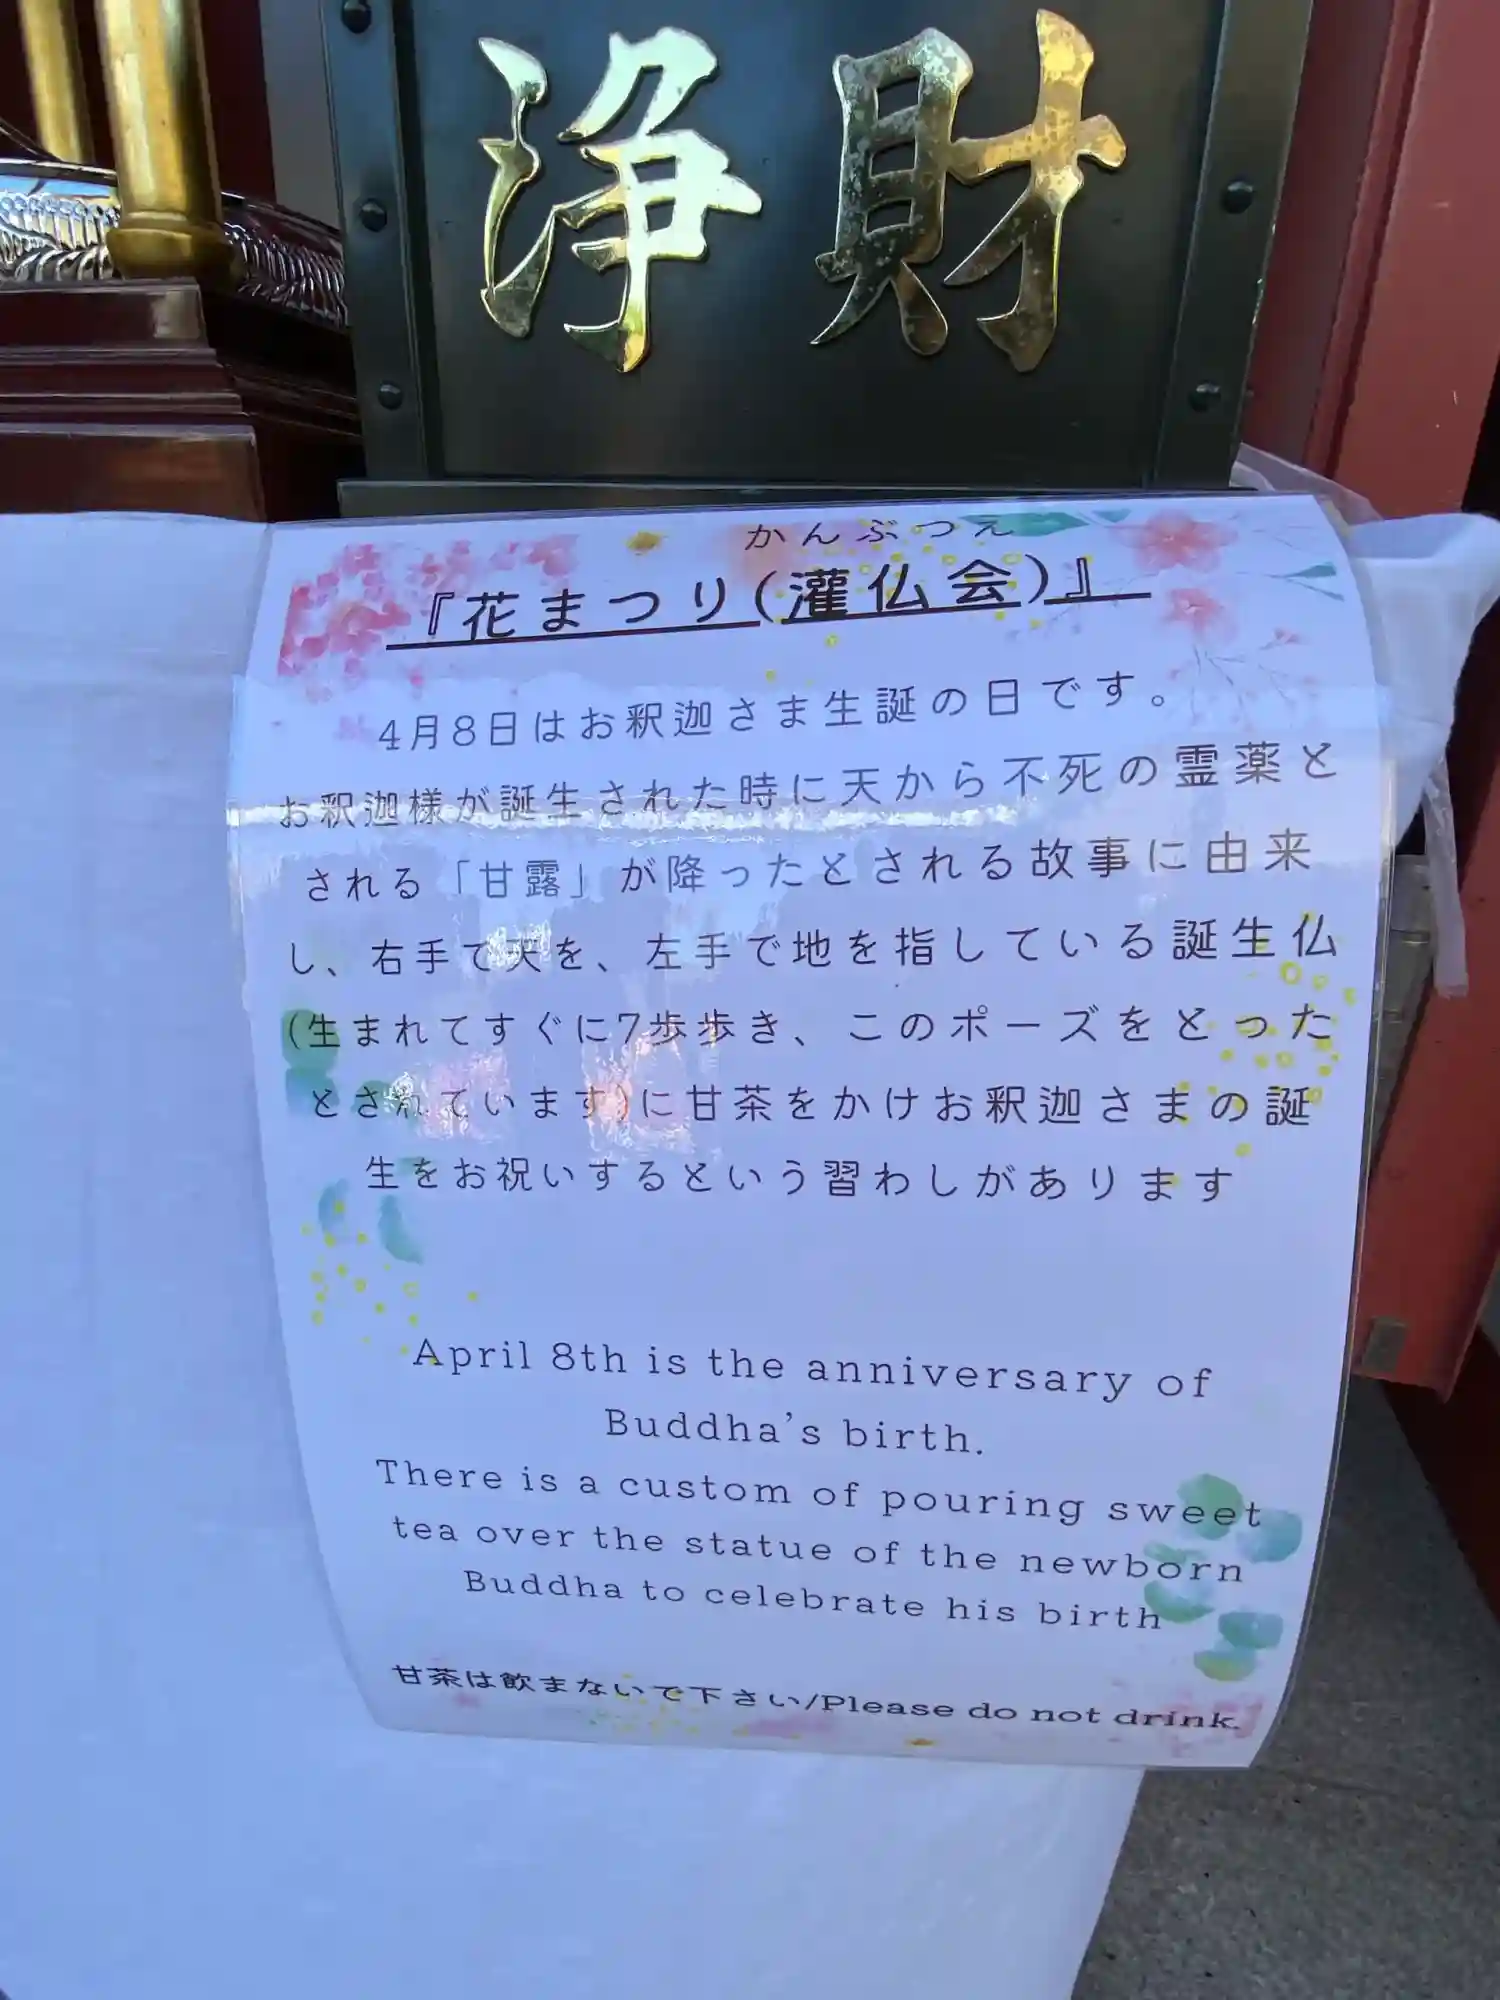 浄財
かんぶつえ
『花まつり(灌仏会)』
4月8日はお釈迦さま生誕の日です。
お釈迦様が誕生された時に天から不死の霊薬と
される「甘露」が降ったとされる故事に由来
し、右手で天を、左手で地を指している誕生仏
(生まれてすぐに7歩歩き、このポーズをとった
とされています)に甘茶をかけお釈迦さまの誕
生をお祝いするという習わしがあります
April 8th is the anniversary of
Buddha's birth.
There is a custom of pouring sweet
tea over the statue of the newborn
Buddha to celebrate his birth
甘茶は飲まないで下さい/Please do not drink.